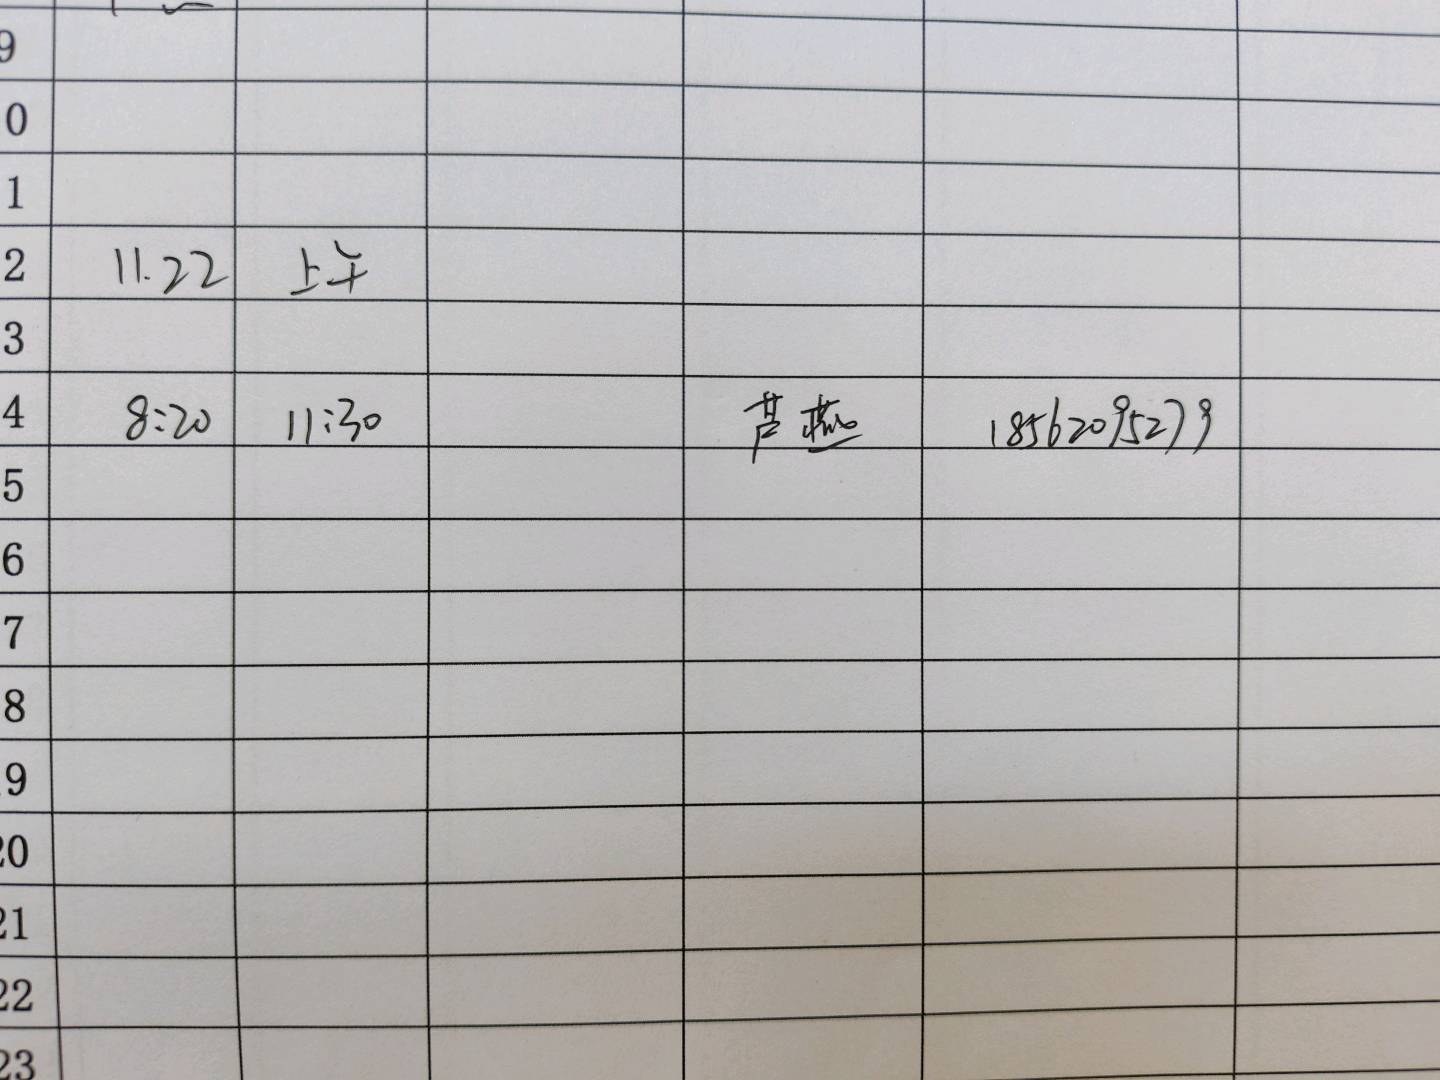 9
0
1
2 11.22 上午
3
4 8:20 11:30 芦燕 18562095279
5
6
7
8
19
20
21
22
23